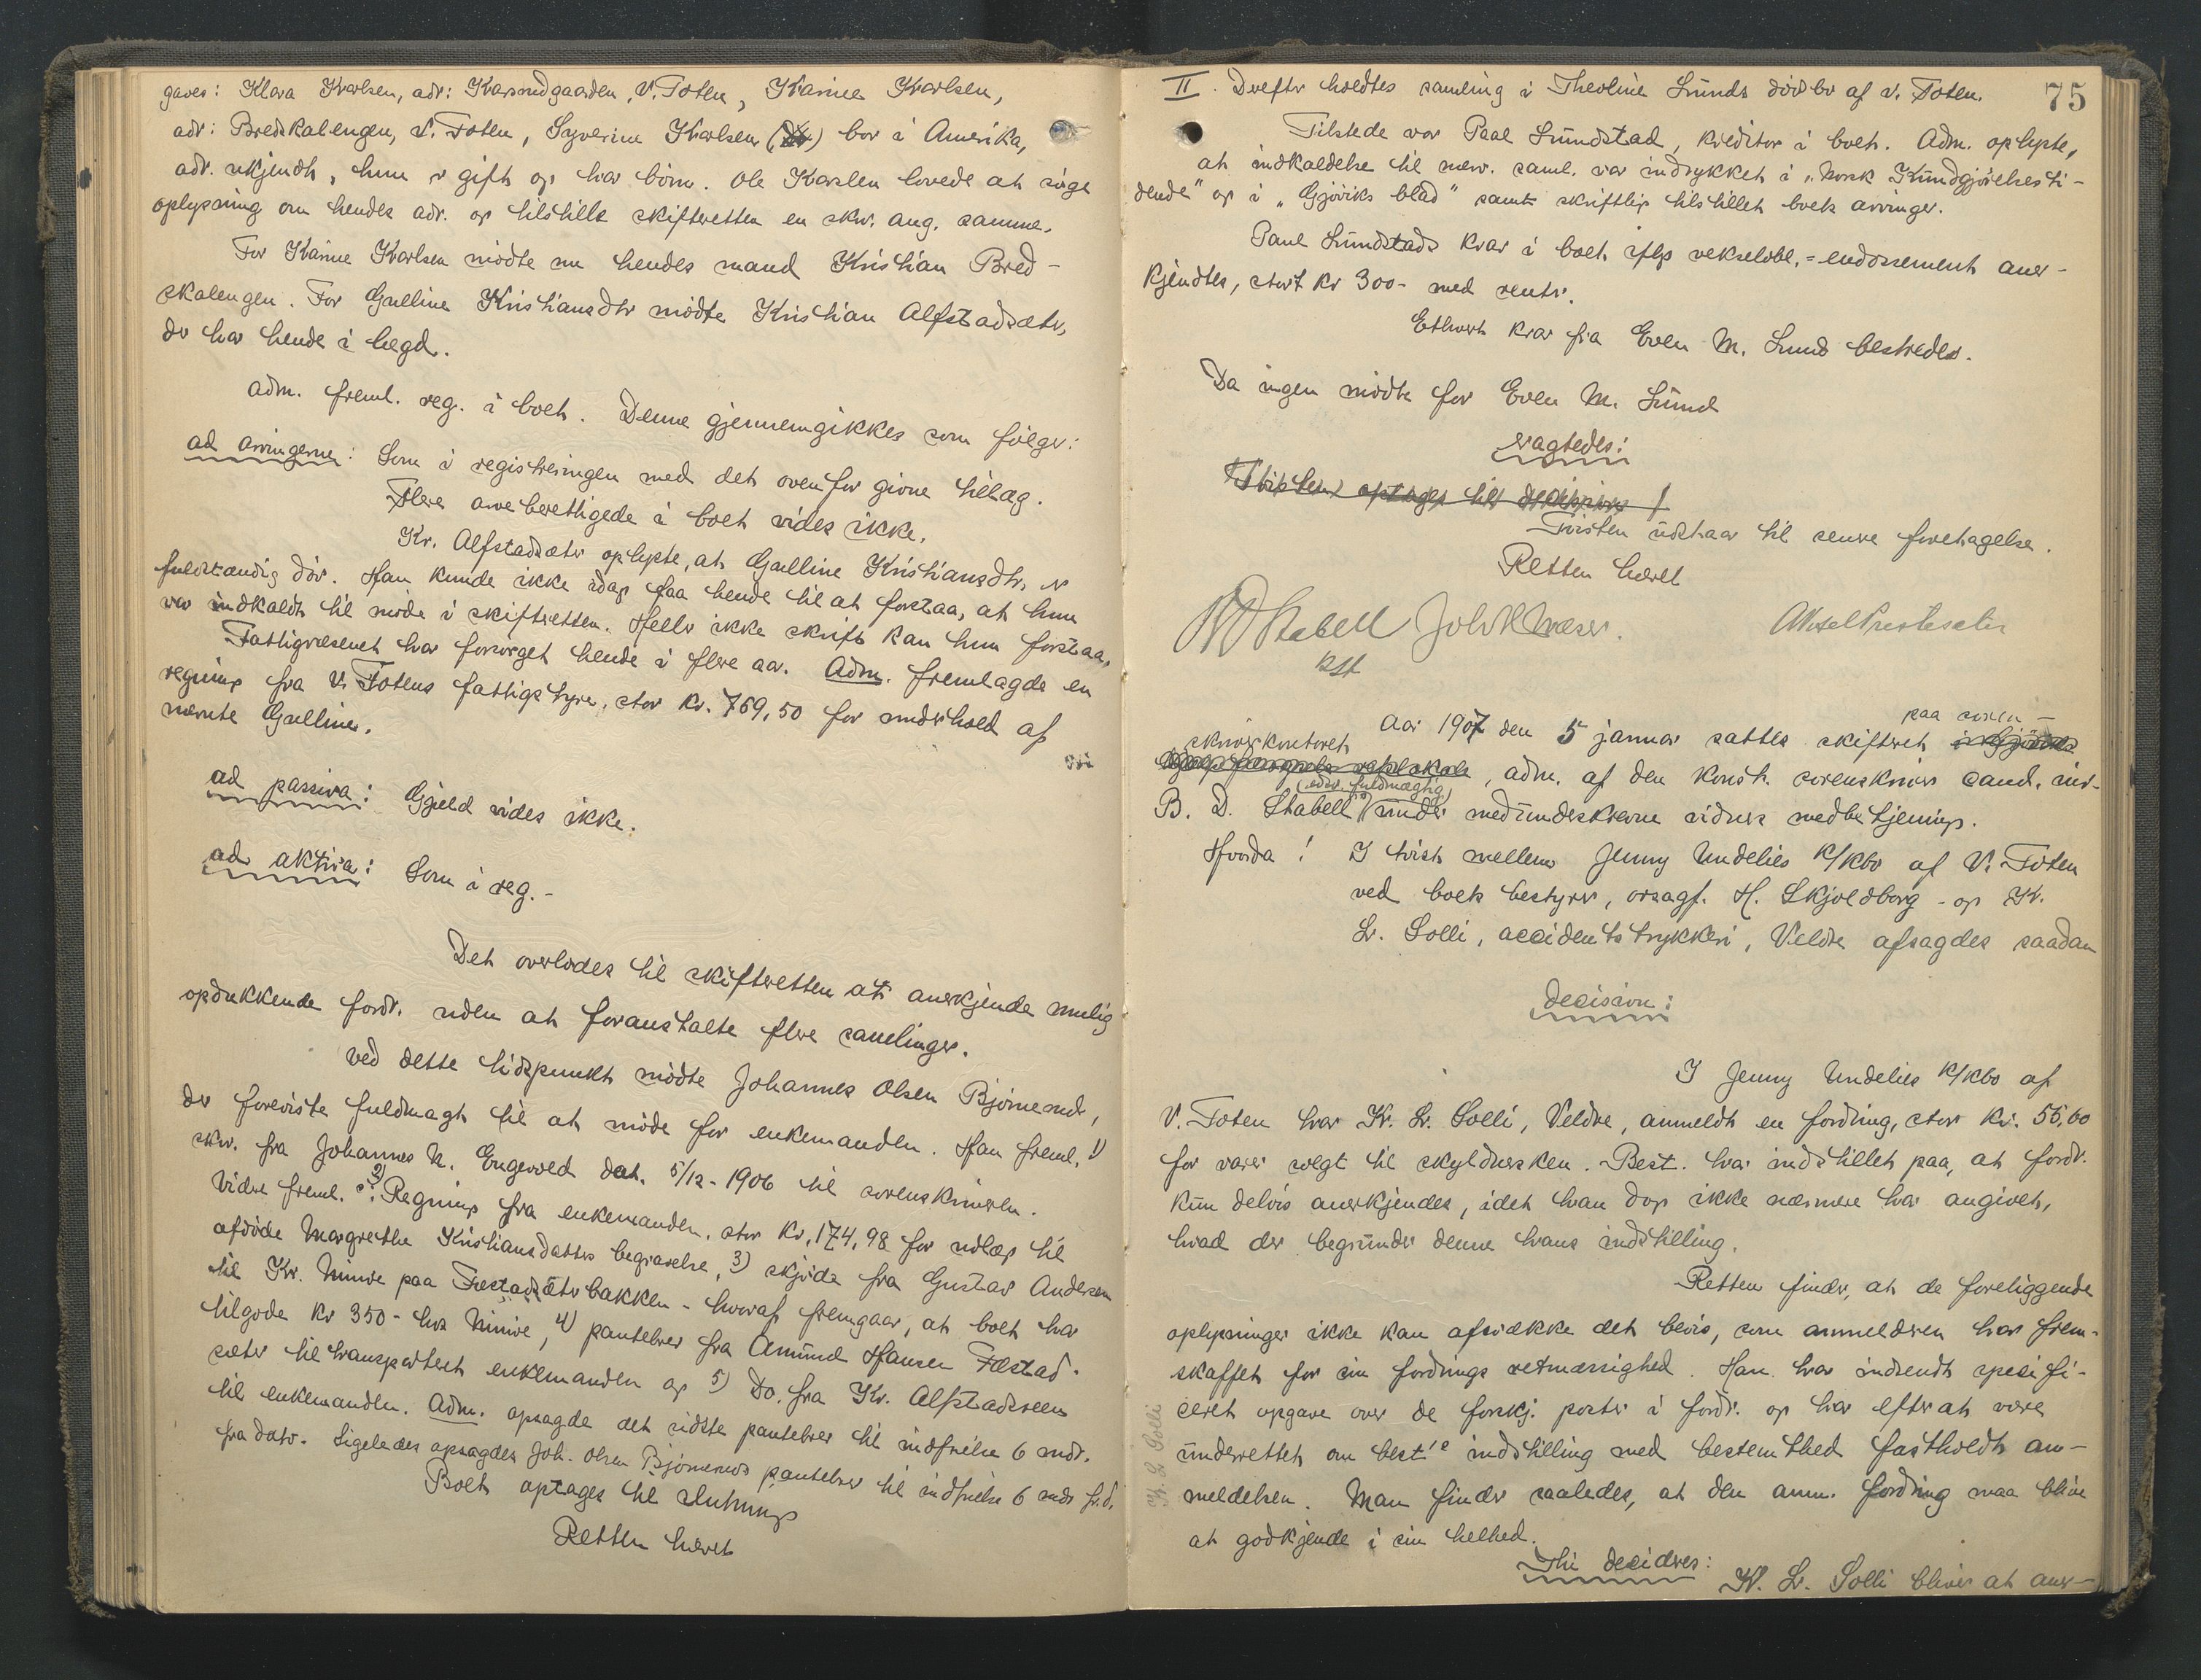 gaves: Klara Karlsen, adr: Karsrudgaarden, V. Toten, Karine Karlsen,
adr: Bredskalengen, V. Toten, Syverine Karlsen bor i Amerika,
adr. ukjendt, hun er gift og har börn. Ole Karlsen lovede at söge
oplysning om hendes adr. og tilstille skifteretten en skr. ang. samme.
For Karine Karlsen mödte nu hendes mand Kristian Bred-
skalengen. For Gulline Kristiansdtr mödte Kristian Alfstadsæter,
der har hende i lægd.
Adm. freml. reg. i boet. Denne gjennemgikkes som fölger:
ad arvingerne: Som i registreringen med det ovenfor givne tillæg.
Flere arveberettigede i boet vides ikke.
Kr. Alfstadsæter oplyste, at Gulline Kristiansdtr. er
fuldstændig döv. Han kunde ikke idag faa hende til at forstaa, at hun
var indkaldt til möde i skifteretten. Heller ikke skrift kan hun forstaa,
Fattigvæsenet har forsörget hende i flere aar. Adm. fremlagde en
regning fra V. Totens fattigstyre, stor kr. 769,50 for underhold af
nævnte Gulline.
ad passiva: Gjæld vides ikke.
ad aktiva: Som i reg. -
Det overlodes til skifteretten at anerkjende mulig
opdukkende fordr. uden at foranstalte flere samlinger.
Ved dette tidspunkt mödte Johannes Olsen Björnerud,
der foreviste fuldmagt til at möde for enkemanden. Han freml. 1)
skr. fra Johannes N. Engevold dat. 5/12-1906 til sorenskriveren.
Videre freml. 2) Regning fra enkemanden, stor kr. 174,98 for udlæg til
afdöde Margrethe Kristiansdatters begravelse, 3) skjöde fra Gustav Andersen
til Kr. Minive paa Fæstadsæterbakken - hvoraf fremgaar, at boet har
tilgode kr 350- hos Minive, 4) pantebrev fra Amund Hansen Fæstad-
sæter til transporteret enkemanden og 5) Do. fra Kr. Alfstadsveen
til enkemanden. Adm. opsagde det sidste pantebrev til indfrielse 6 mdr.
fra dato. Ligeledes opsagdes Joh. Olsen Björneruds pantebrev til indfrielse 6 mdr fr. d.
Boet optages til slutning
Retten hævet
75
II. Derefter holdtes samling i Theoline Lunds dödsbo af V. Toten.
Tilstede var Paul Lundstad, kreditor i boet. Adm. oplyste,
at indkaldelse til nærv. saml. var indrykket i „Norsk Kundgjörelsesti-
dende" og i „Gjöviks blad" samt skriftlig tilstillet boets arvinger.
Paul Lundstads krav i boet iflg vekselobl.=endossement aner-
kjendtes, stort kr 300- med renter.
Ethvert krav fra Even M. Lund bestrides.
Da ingen mödte for Even M. Lund
eragtedes:
Tvisten optages til decision!
Tvisten udstaar til senere foretagelse.
Retten hævet
BDStabell
kst
Aar 1907 den 5 januar sattes skifteret paa soren-
skriverkontoret, adm. af den konst. sorenskriver cand. jur.
B. D. Stabell (edsv. fuldmægtig) under medunderskrevne vidners medbetjening.
Hvorda! I tvist mellem Jenny Undelies k/kbo af V. Toten
ved boets bestyrer, orsagf. H. Skjoldborg - og Kr.
Lr. Solli, accidentstrykkeri, Veldre afsagdes saadan
decision:
I Jenny Undelies k/kbo af
V. Toten har Kr. Lr. Solli, Veldre, anmeldt en fordring, stor kr. 55,60
for varer solgt til skyldnersken. Best. har indstillet paa, at fordr.
kun delvis anerkjendes, idet han dog ikke nærmere har angivet,
hvad der begrunder denne hans indstilling.
Retten finder, at de foreliggende
oplysninger ikke kan afsvække det bevis, som anmelderen har frem-
skaffet for sin fordrings retmæssighed. Han har indsendt specifi-
ceret opgave over de forskj. poster i fordr. og har efter at være
underrettet om best's indstilling med bestemthed fastholdt an-
meldelsen. Man finder saaledes, at den anm. fordring maa blive
at godkjende i sin helhed.
Thi decideres:
Kr. Lr. Solli bliver at aner-
Kr. L Solli